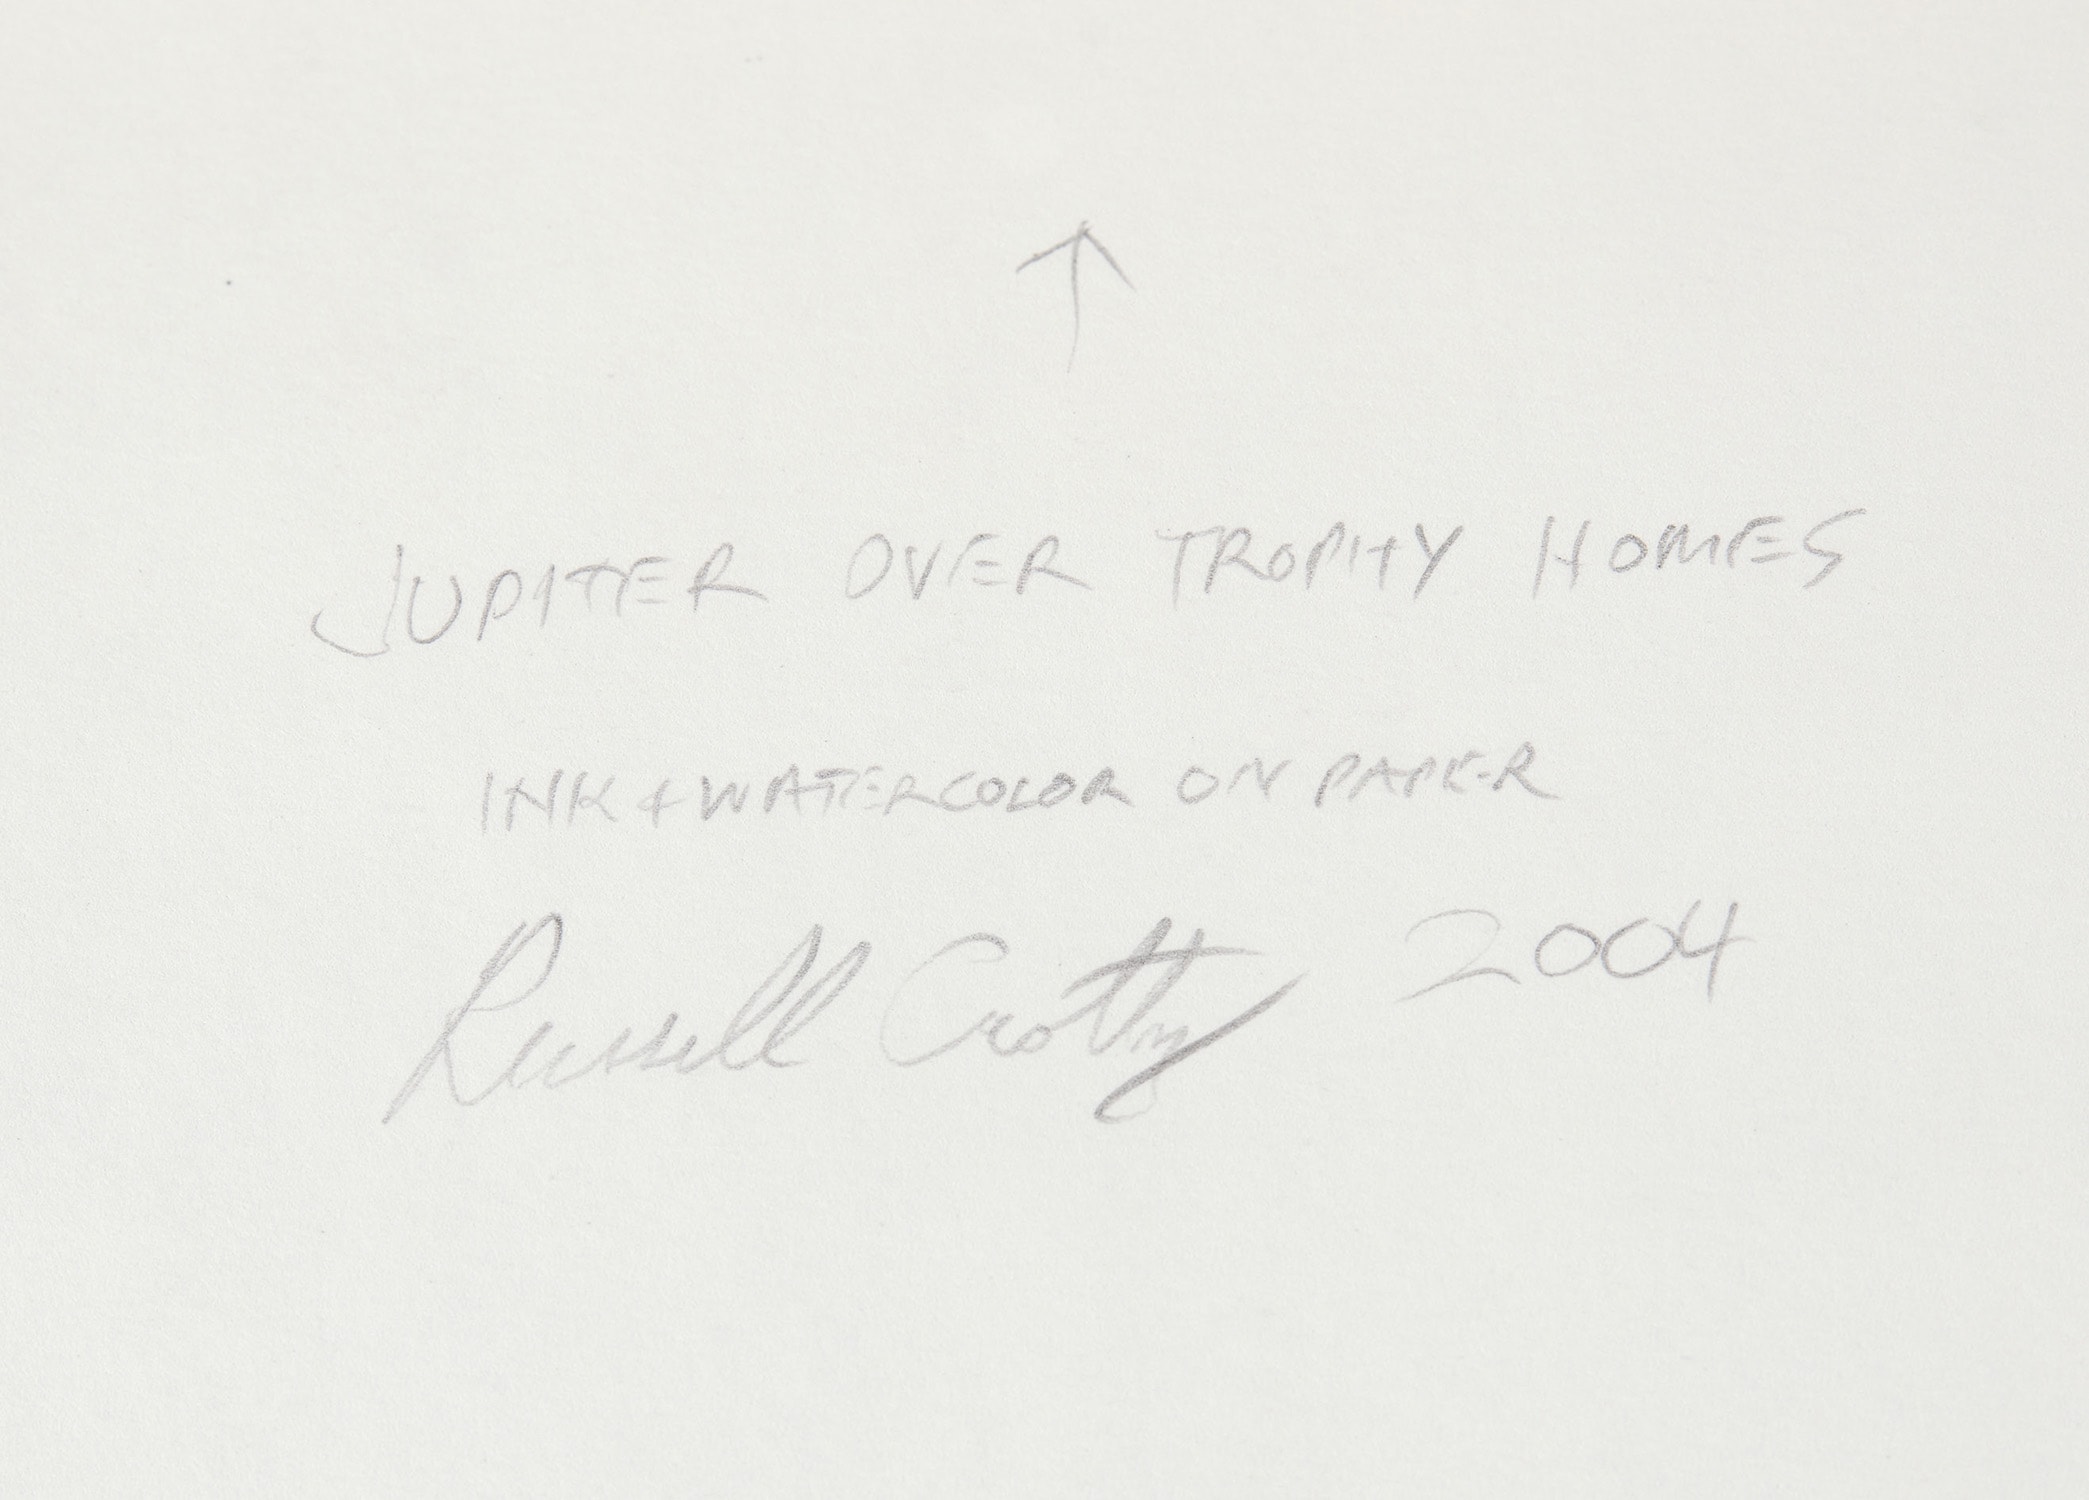 ↑
JUPITER OVER TROPHY HOMES
INK + WATERCOLOR ON PAPER
Russell Crotty 2004